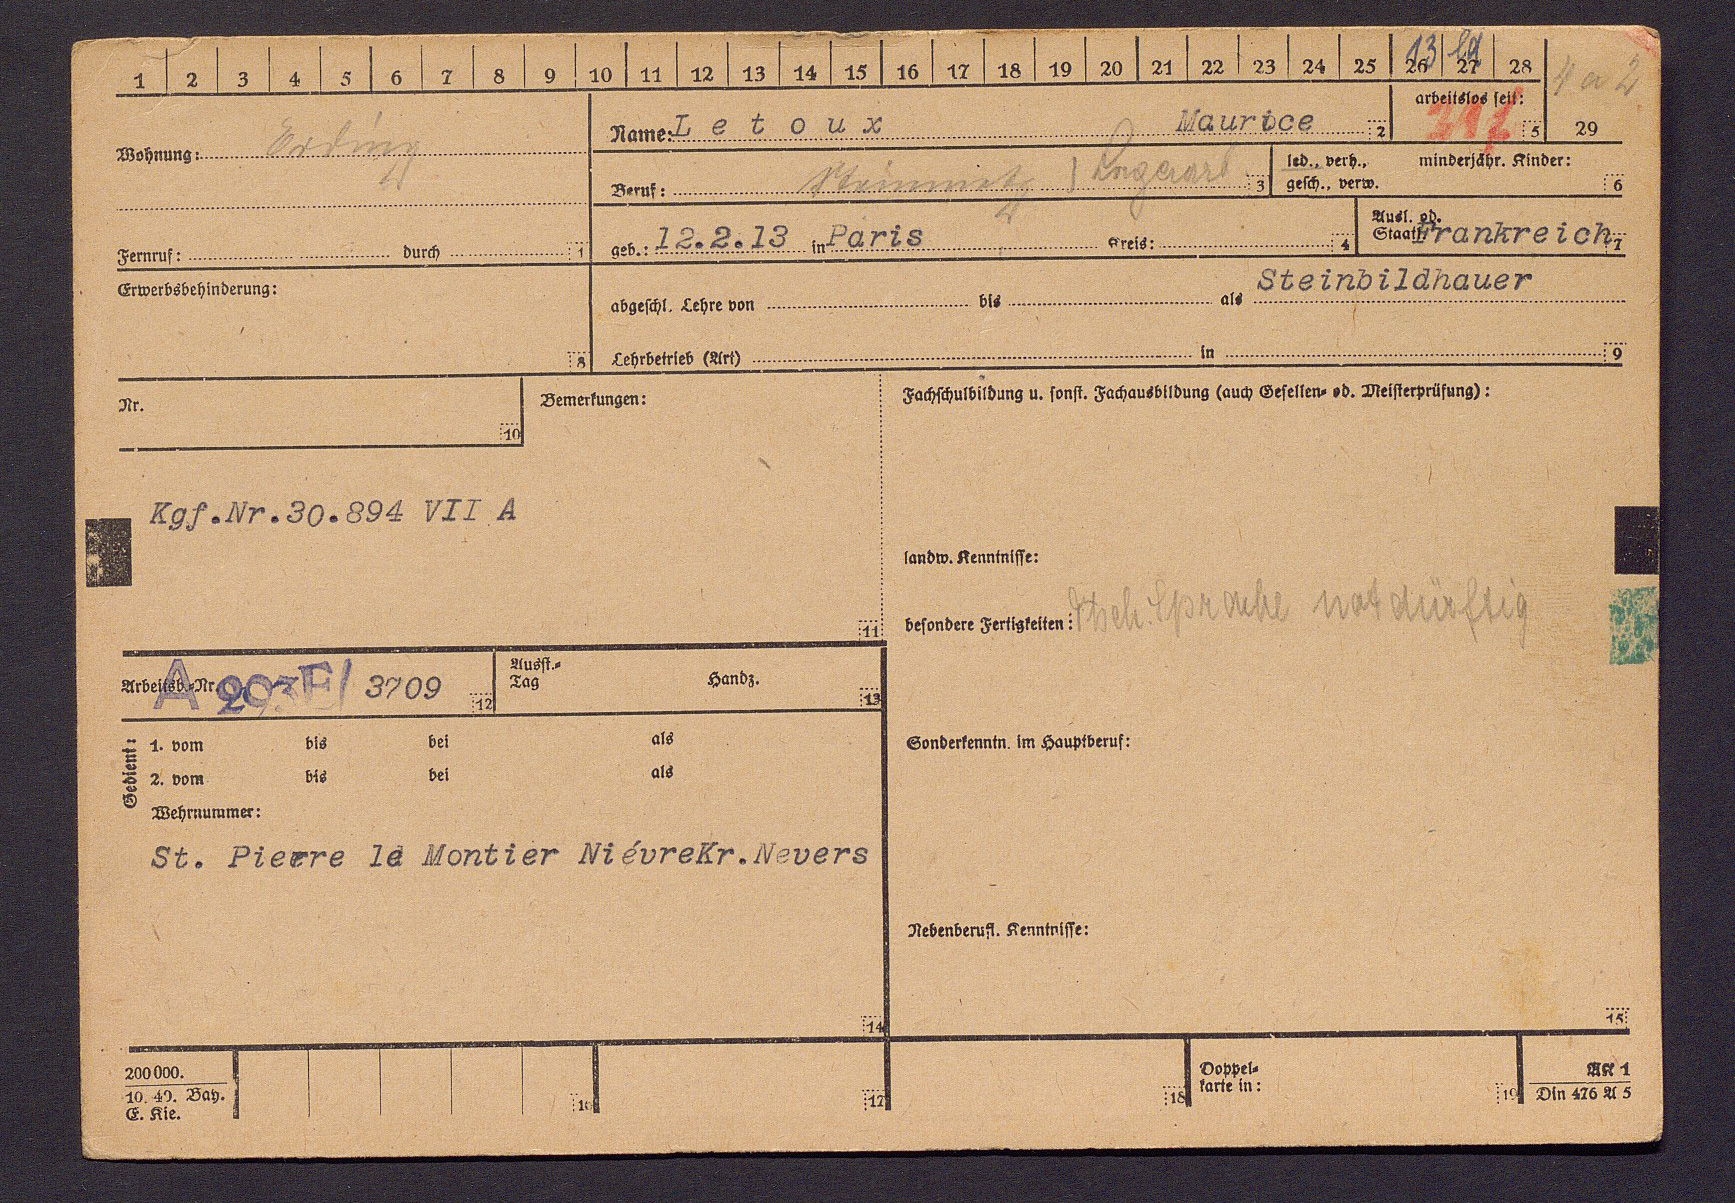 1 2 3 4 5 6 7 8 9 10 11 12 13 14 15 16 17 18 19 20 21 22 23 24 25 26 27 28
13
4 a 2
arbeitslos seit:
5 29
Wohnung: Erding
Name: Letoux Maurice 2
Beruf: Steinmetz 3
led., verh., minderjähr. Kinder:
gesch., verw. 6
Fernruf: durch 1
geb.: 12.2.13 in Paris Kreis: 4
Ausl. od.
Staatl. Frankreich 7
Erwerbsbehinderung:
8
Steinbildhauer
abgeschl. Lehre von bis als
Lehrbetrieb (Art) in 9
Nr.
10
Bemerkungen:
Fachschulbildung u. sonst. Fachausbildung (auch Gesellen- od. Meisterprüfung):
Kgf.Nr.30.894 VII A
11
landw. Kenntnisse:
besondere Fertigkeiten: Dtsch. Sprache notdürftig
Arbeitsb.-Nr. A 293E/ 3709 12
Ausst.-
Tag Handz. 13
Gedient:
1. vom bis bei als
2. vom bis bei als
Wehrnummer:
St. Pierre le Montier NiévreKr.Nevers
14
Sonderkenntn. im Hauptberuf:
Nebenberufl. Kenntnisse:
15
200000.
10. 40. Bay.
E. Kie.
16 17 18
Doppel-
karte in: 19
AK 1
Din 476 A 5